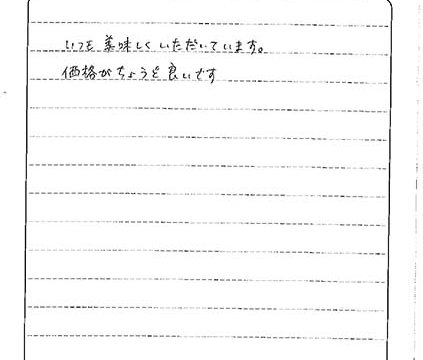 いつも美味しくいただいています。
価格がちょうど良いです